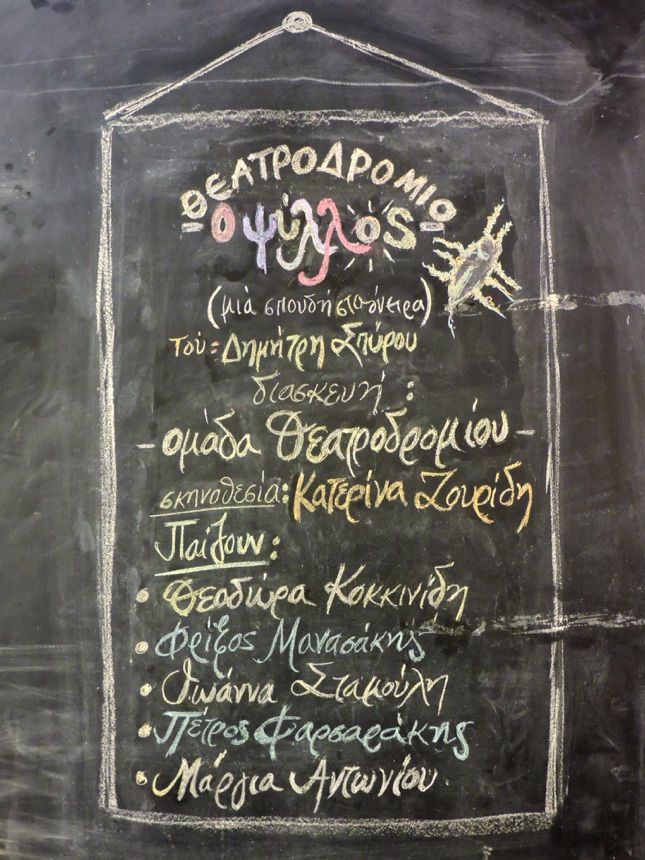 ΘΕΑΤΡΟΔΡΟΜΙΟ
-Ο ψύλλος-
(μιά σπουδή στο όνειρο)
τού: Δημήτρη Σπύρου
διασκευή :
- ομάδα Θεατροδρομίου -
σκηνοθεσία: Κατερίνα Ζουρίδη
Παίζουν:
• Θεοδώρα Κοκκινίδη
• Φρίξος Μανασάκης
• Ιωάννα Σταμούλη
• Πέτρος Φαρσαράκης
• Μάργια Αντωνίου.